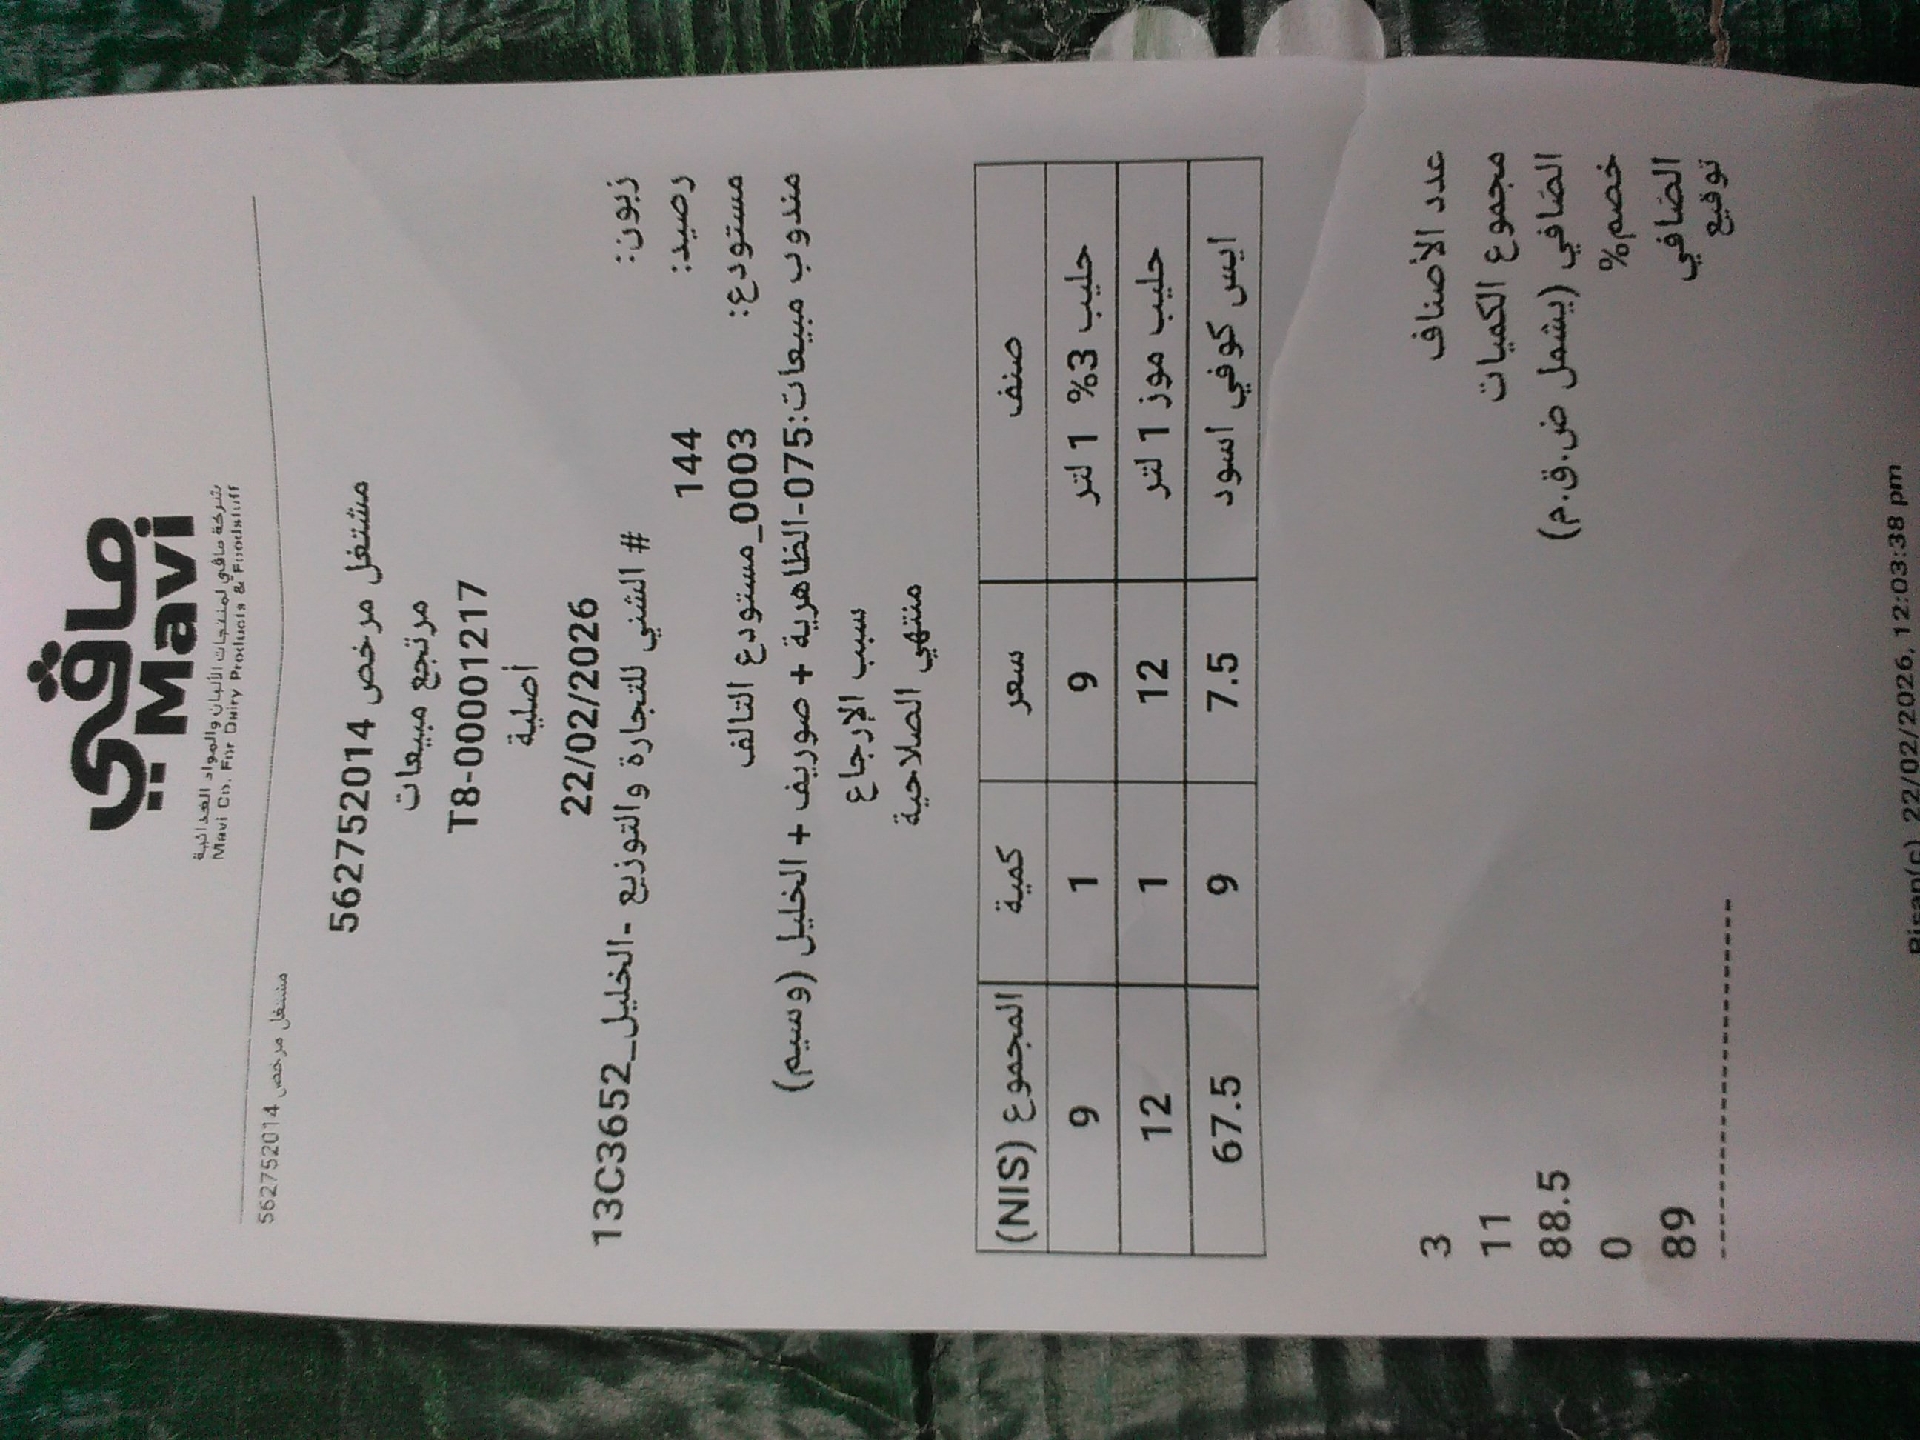 مافي
Mavi
شركة مافي لمنتجات الألبان والمواد الغذائية
Mavi Co. For Dairy Products & Foodstuff
مشتغل مرخص 562752014
مشتغل مرخص 562752014
مرتجع مبيعات
T8-00001217
أصلية
22/02/2026
زبون: # الشني للتجارة والتوزيع -الخليل_13C3652
رصيد: 144
مستودع: 0003_مستودع التالف
مندوب مبيعات:075-الظاهرية + صوريف + الخليل (وسيم)
سبب الارجاع
منتهي الصلاحية
صنف سعر كمية المجموع (NIS)
حليب 3% 1 لتر 9 1 9
حليب موز 1 لتر 12 1 12
ايس كوفي اسود 7.5 9 67.5
عدد الأصناف 3
مجموع الكميات 11
الصافي (يشمل ض.ق.م) 88.5
خصم% 0
الصافي 89
توقيع
Bisan(c) 22/02/2026, 12:03:38 pm